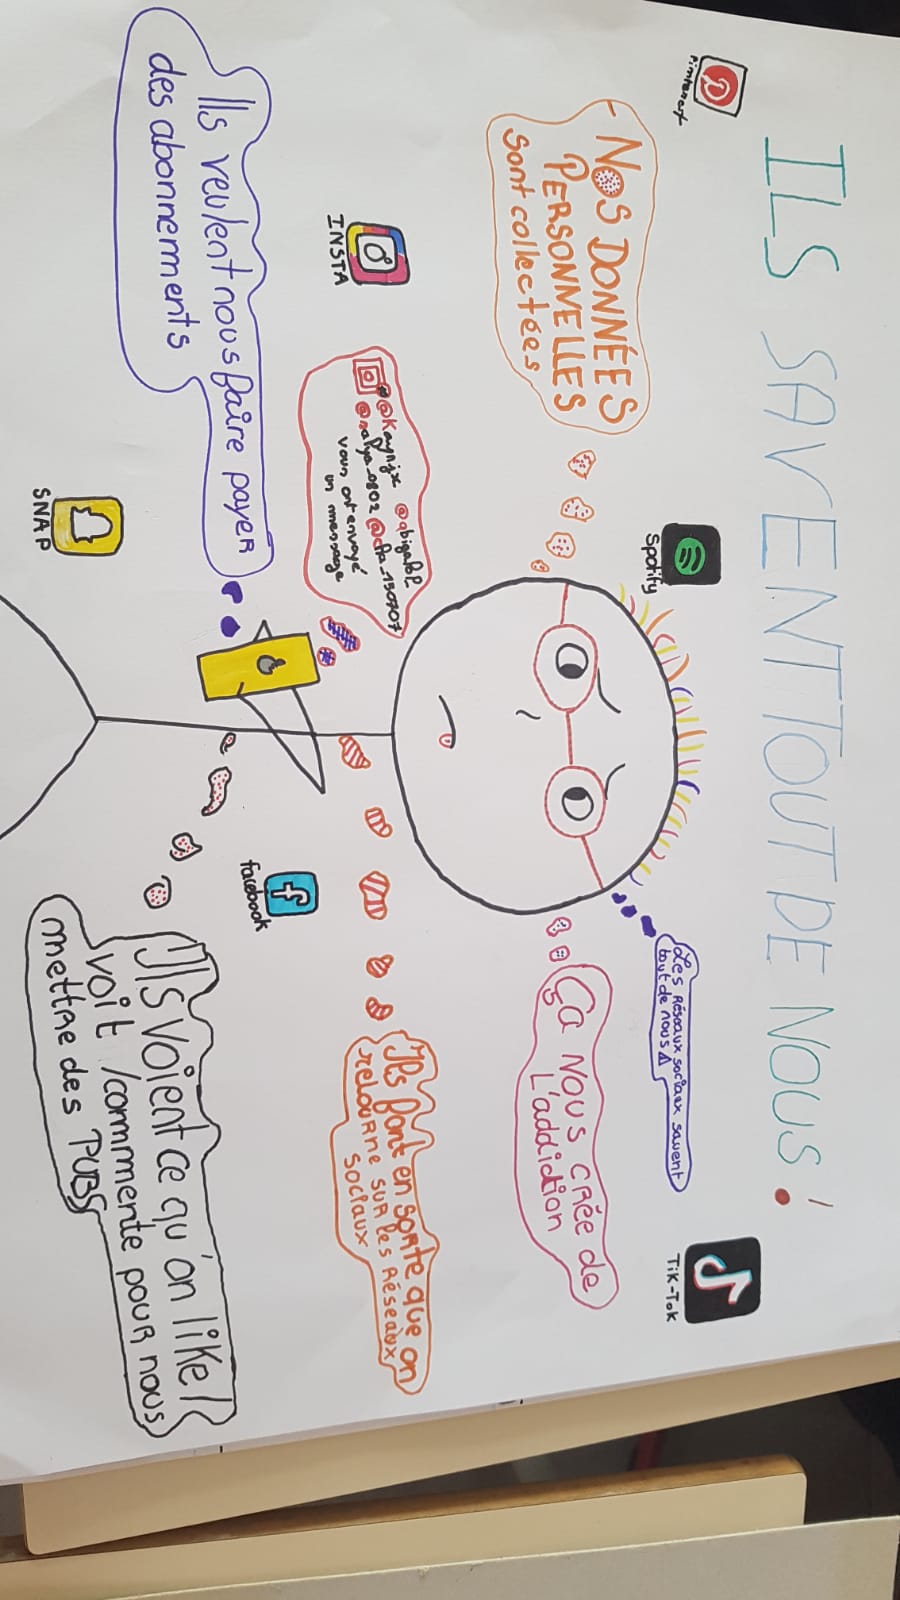 ILS SAVENT TOUT DE NOUS !
Pinterest
- NOS DONNÉES
PERSONNELLES
Sont collectées
Spotify
Les Réseaux sociaux savent
tout de nous
TIK-TOK
Ça NOUS CRÉE de
L'addidtion
INSTA
vous ont envoyé
un message
Ils font en sorte que on
retourne sur les Réseaux
sociaux
Ils veulent nous faire payer
des abonnements
facebook
SNAP
ILS Voient ce qu'on like/
voit /commmente pour nous
mettre des PUBS